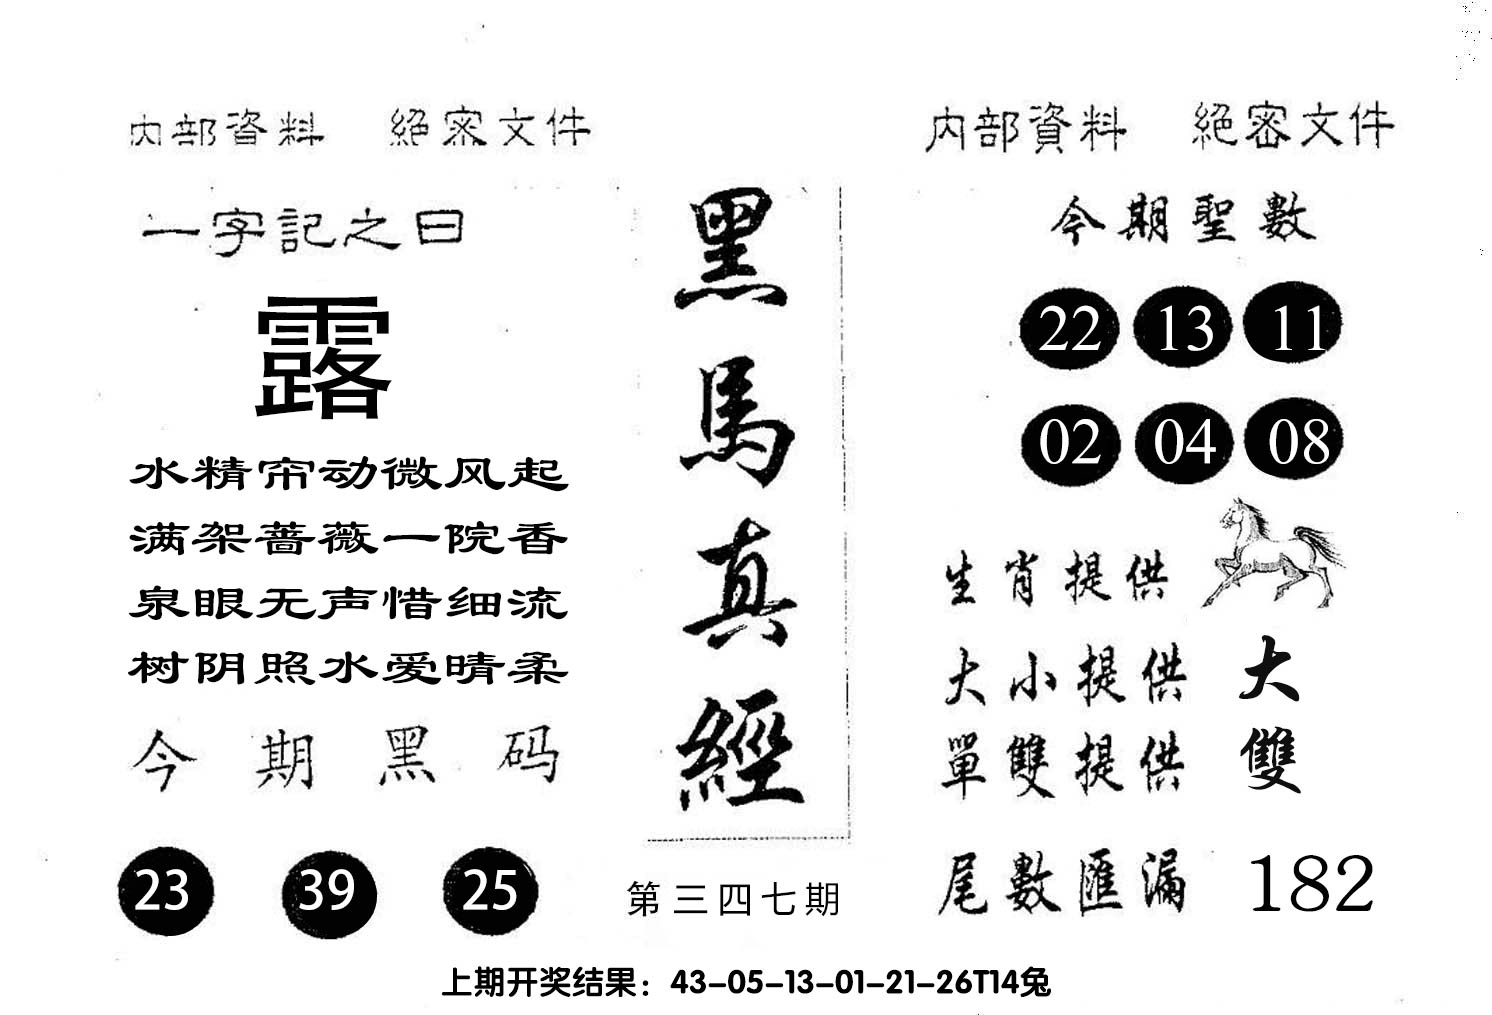 内部資料 絕密文件
一字記之曰
露
水精帘动微风起
满架蔷薇一院香
泉眼无声惜细流
树阴照水爱晴柔
今期黑码
23 39 25
黑馬真經
第三四七期
内部資料 絕密文件
今期聖數
22 13 11
02 04 08
生肖提供
大小提供 大
單雙提供 雙
尾數匯漏 182
上期开奖结果：43-05-13-01-21-26T14兔